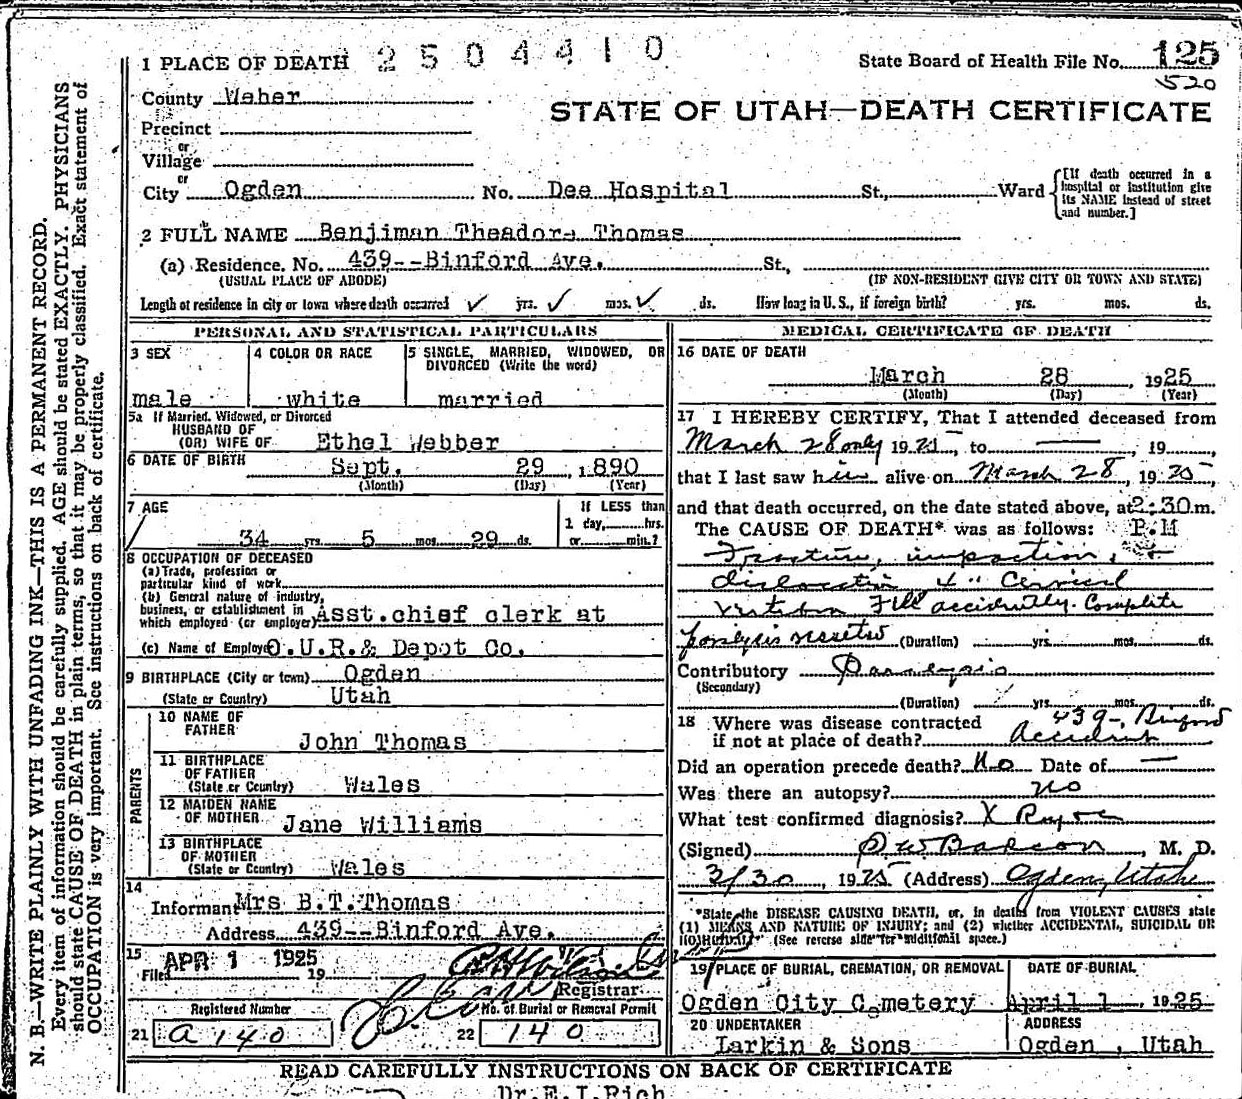 1 PLACE OF DEATH 2504410
State Board of Health File No. 125
520
County Weber
STATE OF UTAH—DEATH CERTIFICATE
Precinct
or
Village
or
City Ogden No. Dee Hospital St., Ward
[If death occurred in a hospital or institution give its NAME instead of street and number.]
2 FULL NAME Benjiman Theadore Thomas
(a) Residence. No. 439--Binford Ave. St.,
(USUAL PLACE OF ABODE) (IF NON-RESIDENT GIVE CITY OR TOWN AND STATE)
Length of residence in city or town where death occurred ✓ yrs. ✓ mos. ✓ ds. How long in U. S., if foreign birth? yrs. mos. ds.
PERSONAL AND STATISTICAL PARTICULARS
3 SEX
male
4 COLOR OR RACE
white
5 SINGLE, MARRIED, WIDOWED, OR
DIVORCED (Write the word)
married
5a If Married, Widowed, or Divorced
HUSBAND OF
(OR) WIFE OF Ethel Webber
6 DATE OF BIRTH Sept. 29, 1890
(Month) (Day) (Year)
7 AGE
34 yrs. 5 mos. 29 ds.
If LESS than
1 day, hrs.
or min.?
8 OCCUPATION OF DECEASED
(a) Trade, profession or
particular kind of work
(b) General nature of industry,
business, or establishment in
which employed (or employer) Asst.chief clerk at
(c) Name of Employer O.U.R.& Depot Co.
9 BIRTHPLACE (City or town) Ogden
(State or Country) Utah
PARENTS
10 NAME OF
FATHER
John Thomas
11 BIRTHPLACE
OF FATHER
(State or Country) Wales
12 MAIDEN NAME
OF MOTHER Jane Williams
13 BIRTHPLACE
OF MOTHER
(State or Country) Wales
14
Informant Mrs B.T.Thomas
Address 439--Binford Ave.
15
Filed APR 1 1925 19
Registrar
Registered Number
No. of Burial or Removal Permit
21 a 140
22 140
MEDICAL CERTIFICATE OF DEATH
16 DATE OF DEATH
March 28, 1925
(Month) (Day) (Year)
17 I HEREBY CERTIFY, That I attended deceased from
March 28 only 1925, to — , 19
that I last saw him alive on March 28, 1925,
and that death occurred, on the date stated above, at 2:30 m.
The CAUSE OF DEATH* was as follows: P.M
Fracture, impaction, +
dislocation 4" Cervical
Fell accidently. Complete
(Duration) yrs. mos. ds.
Contributory Paralysis
(Secondary)
(Duration) yrs. mos. ds.
18 Where was disease contracted 439-, Binford
if not at place of death? Accident
Did an operation precede death? No Date of —
Was there an autopsy? no
What test confirmed diagnosis? X Ray
(Signed) M. D.
3/30, 1925 (Address) Ogden, Utah
*State the DISEASE CAUSING DEATH, or, in deaths from VIOLENT CAUSES state
(1) MEANS AND NATURE OF INJURY; and (2) whether ACCIDENTAL, SUICIDAL OR
HOMICIDAL. (See reverse side for additional space.)
19 PLACE OF BURIAL, CREMATION, OR REMOVAL
Ogden City Cemetery
DATE OF BURIAL
April 1, 1925
20 UNDERTAKER
Larkin & Sons
ADDRESS
Ogden, Utah
READ CAREFULLY INSTRUCTIONS ON BACK OF CERTIFICATE
Dr.E.I.Rich
N. B.—WRITE PLAINLY WITH UNFADING INK—THIS IS A PERMANENT RECORD.
Every item of information should be carefully supplied. AGE should be stated EXACTLY. PHYSICIANS
should state CAUSE OF DEATH in plain terms, so that it may be properly classified. Exact statement of
OCCUPATION is very important. See instructions on back of certificate.